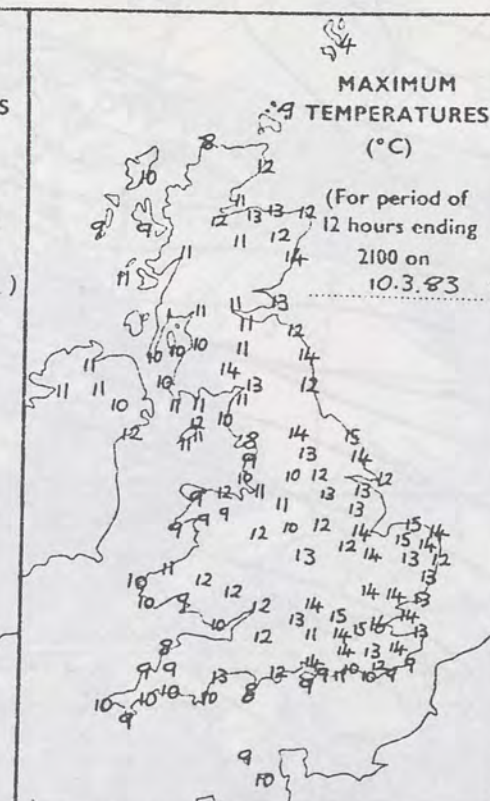 S
)
MAXIMUM
TEMPERATURES
(°C)
(For period of
12 hours ending
2100 on
10.3.83
4
9
8
12
10
11
12 13 13 12
9 9
11 12
11
14
11
11 13
11
11 12
10 10 10
11
14
14
10
13 12
11
11
11 11
11 11
10
12
10
12
11
8
14
15
9
13
14
10
10 12
12
9 12 11
13
13
9 9 9
11
13
12 10 12
14
15 14
15 14
13
12 14
13 12
11
13
10
12
12
14 14 13
10
9
10
12
14
15
14
13
12
11
14
15
14
13
8
14
13
14
9 9
13
13
14
9 9 11 10 10 12 9
10 10 10
10
8
9
9
10